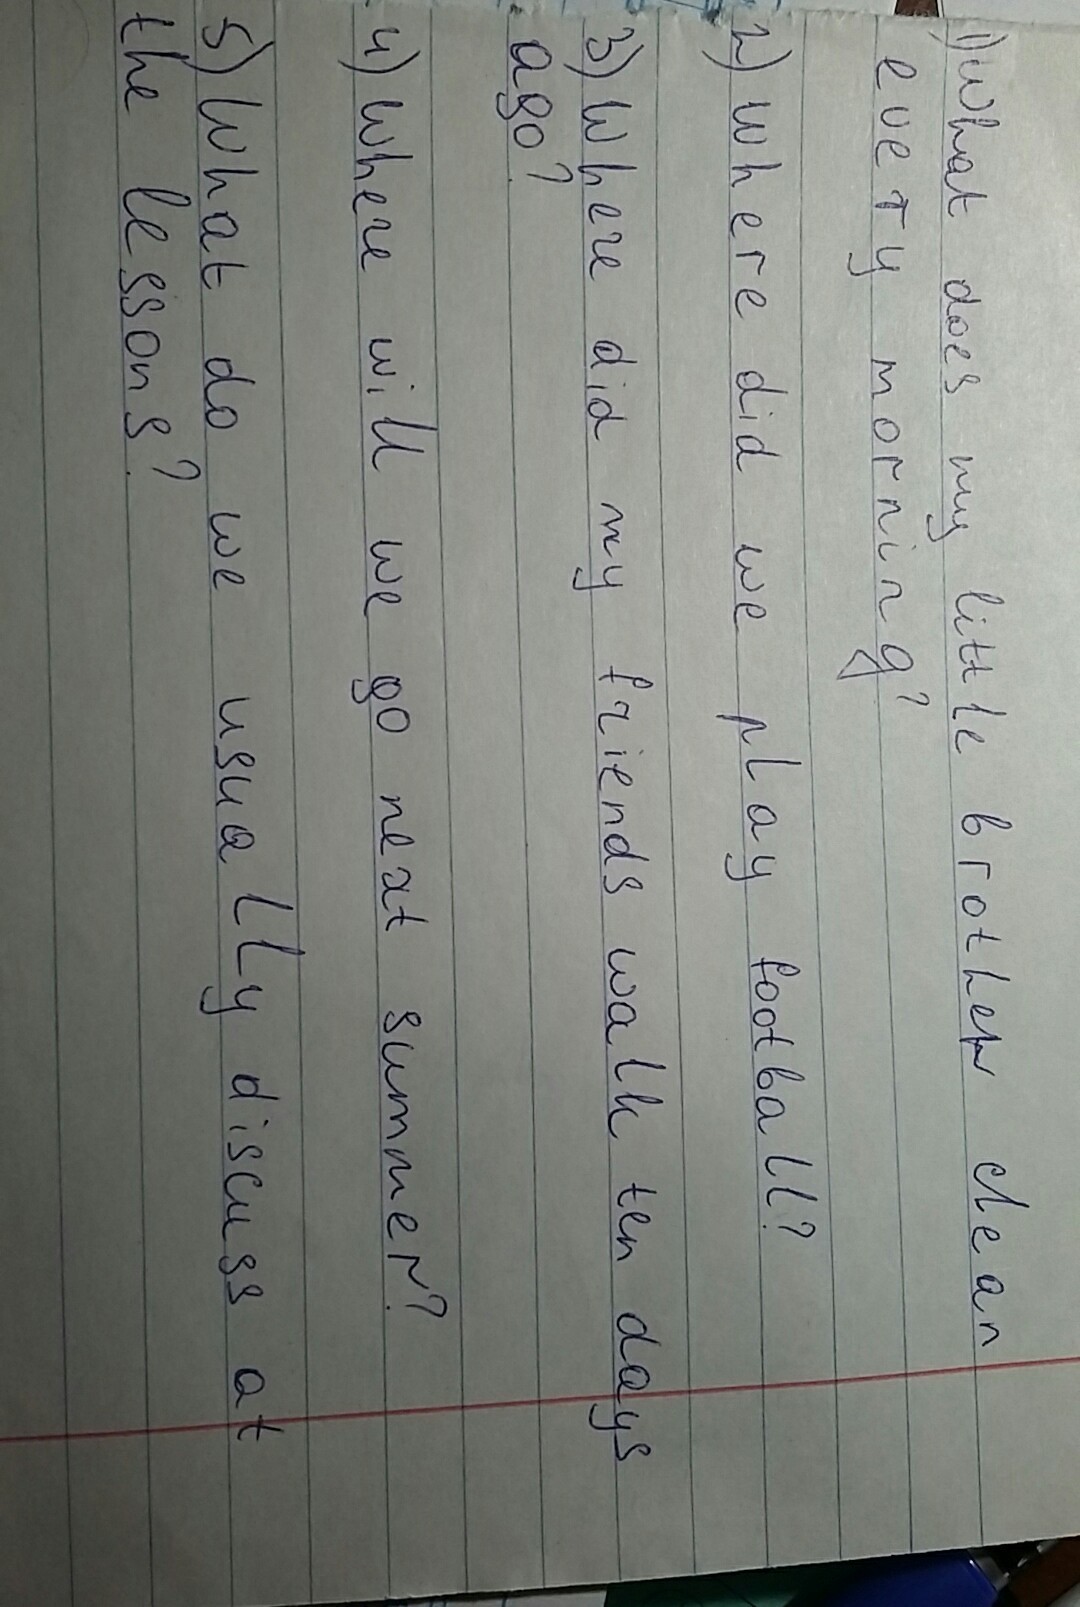 1) What does my little brother clean
every morning?
2) Where did we play football?
3) Where did my friends walk ten days
ago?
4) Where will we go next summer?
5) What do we usually discuss at
the lessons?